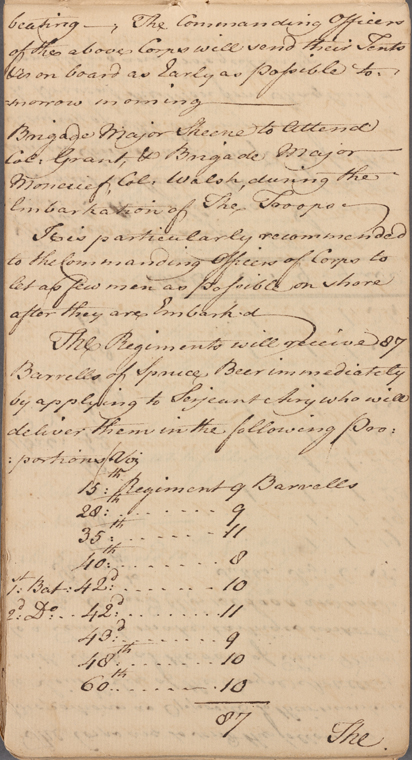 beating —, The Commanding Officers
of the above Corps will send their Tents
&c on board as Early as Possible to-
morrow morning
Brigade Major Skene to Attend
Col: Grant, & Brigade Major
Moncrief, Col: Walsh, during the
Embarkation of The Troops
It is particularly recommended
to the Commanding Officers of Corps to
let as few men as possible on shore
after they are Embark'd
The Regiments will receive 87
Barrells of Spruce Beer immediately
by applying to Serjeant Airy who will
deliver them in the following Pro-
:portions Viz
15:th Regiment 9 Barralls
28:th ........ 9
35:th ........ 11
40:th ........ 8
1:st Bat: 42:d ........ 10
2:d Do... 42:d ........ 11
43:d ........ 9
48:th ........ 10
60:th ........ 10
87
The